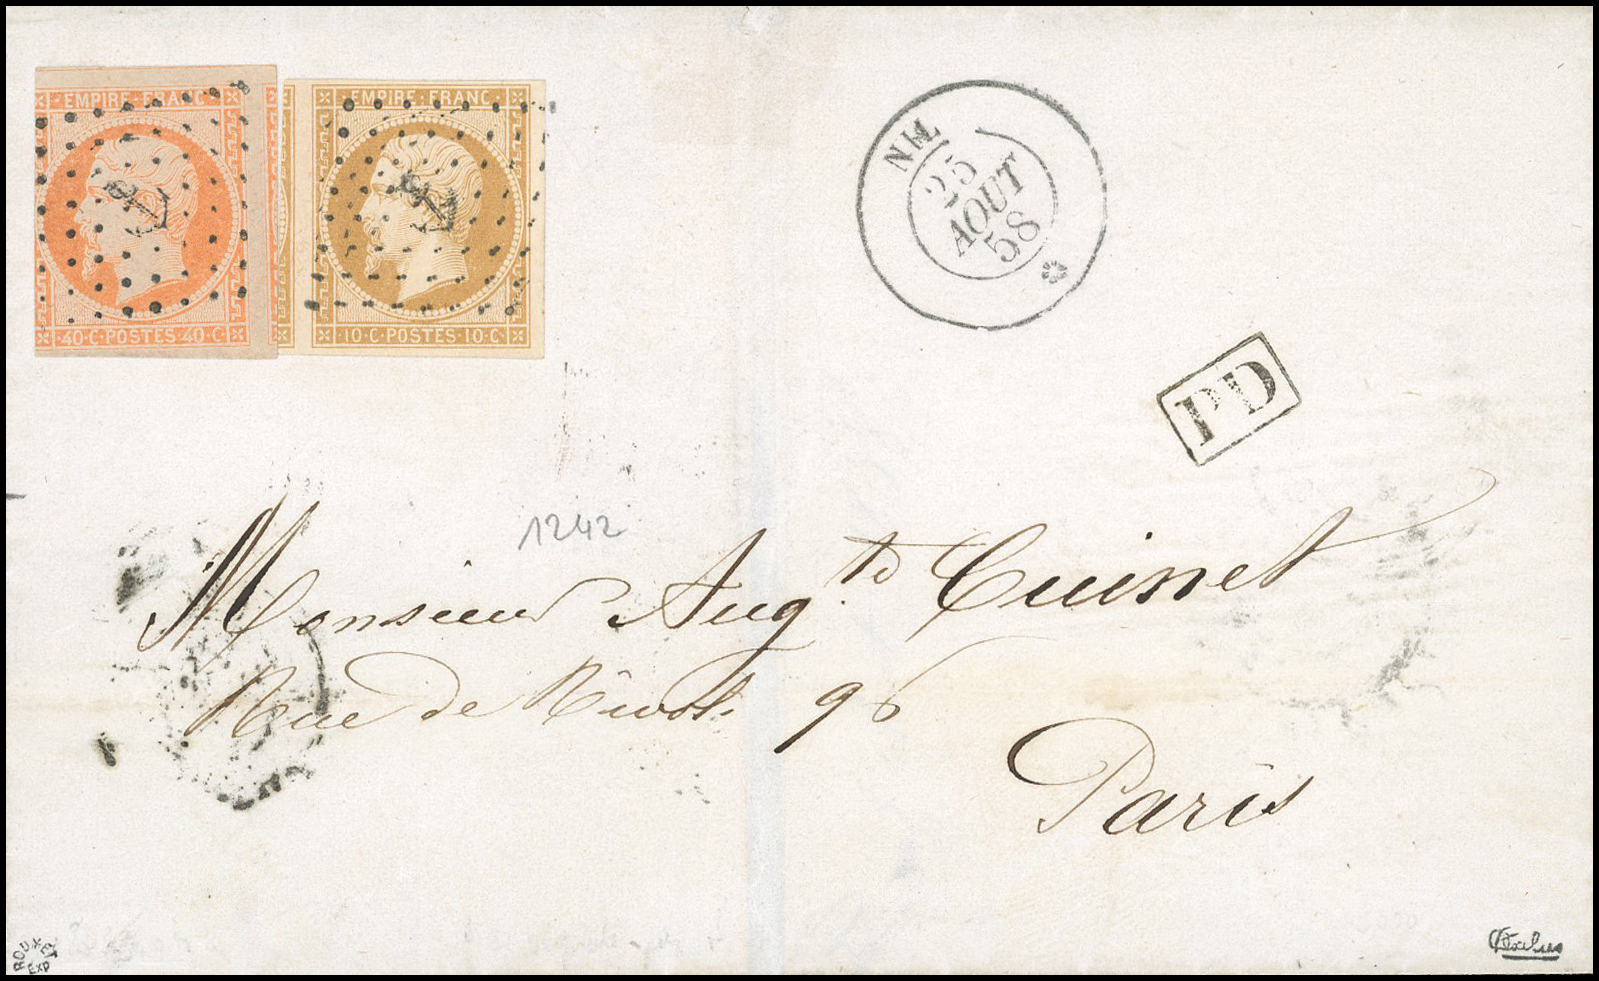 EMPIRE · FRANC ·
· 40 · C · POSTES · 40 · C
EMPIRE · FRANC ·
· 10 · C · POSTES · 10 · C ·
25
AOUT
58
PD
1242
Monsieur Aug.te Cuinet
Rue de Rivoli 96
Paris
ROUXET
EXP